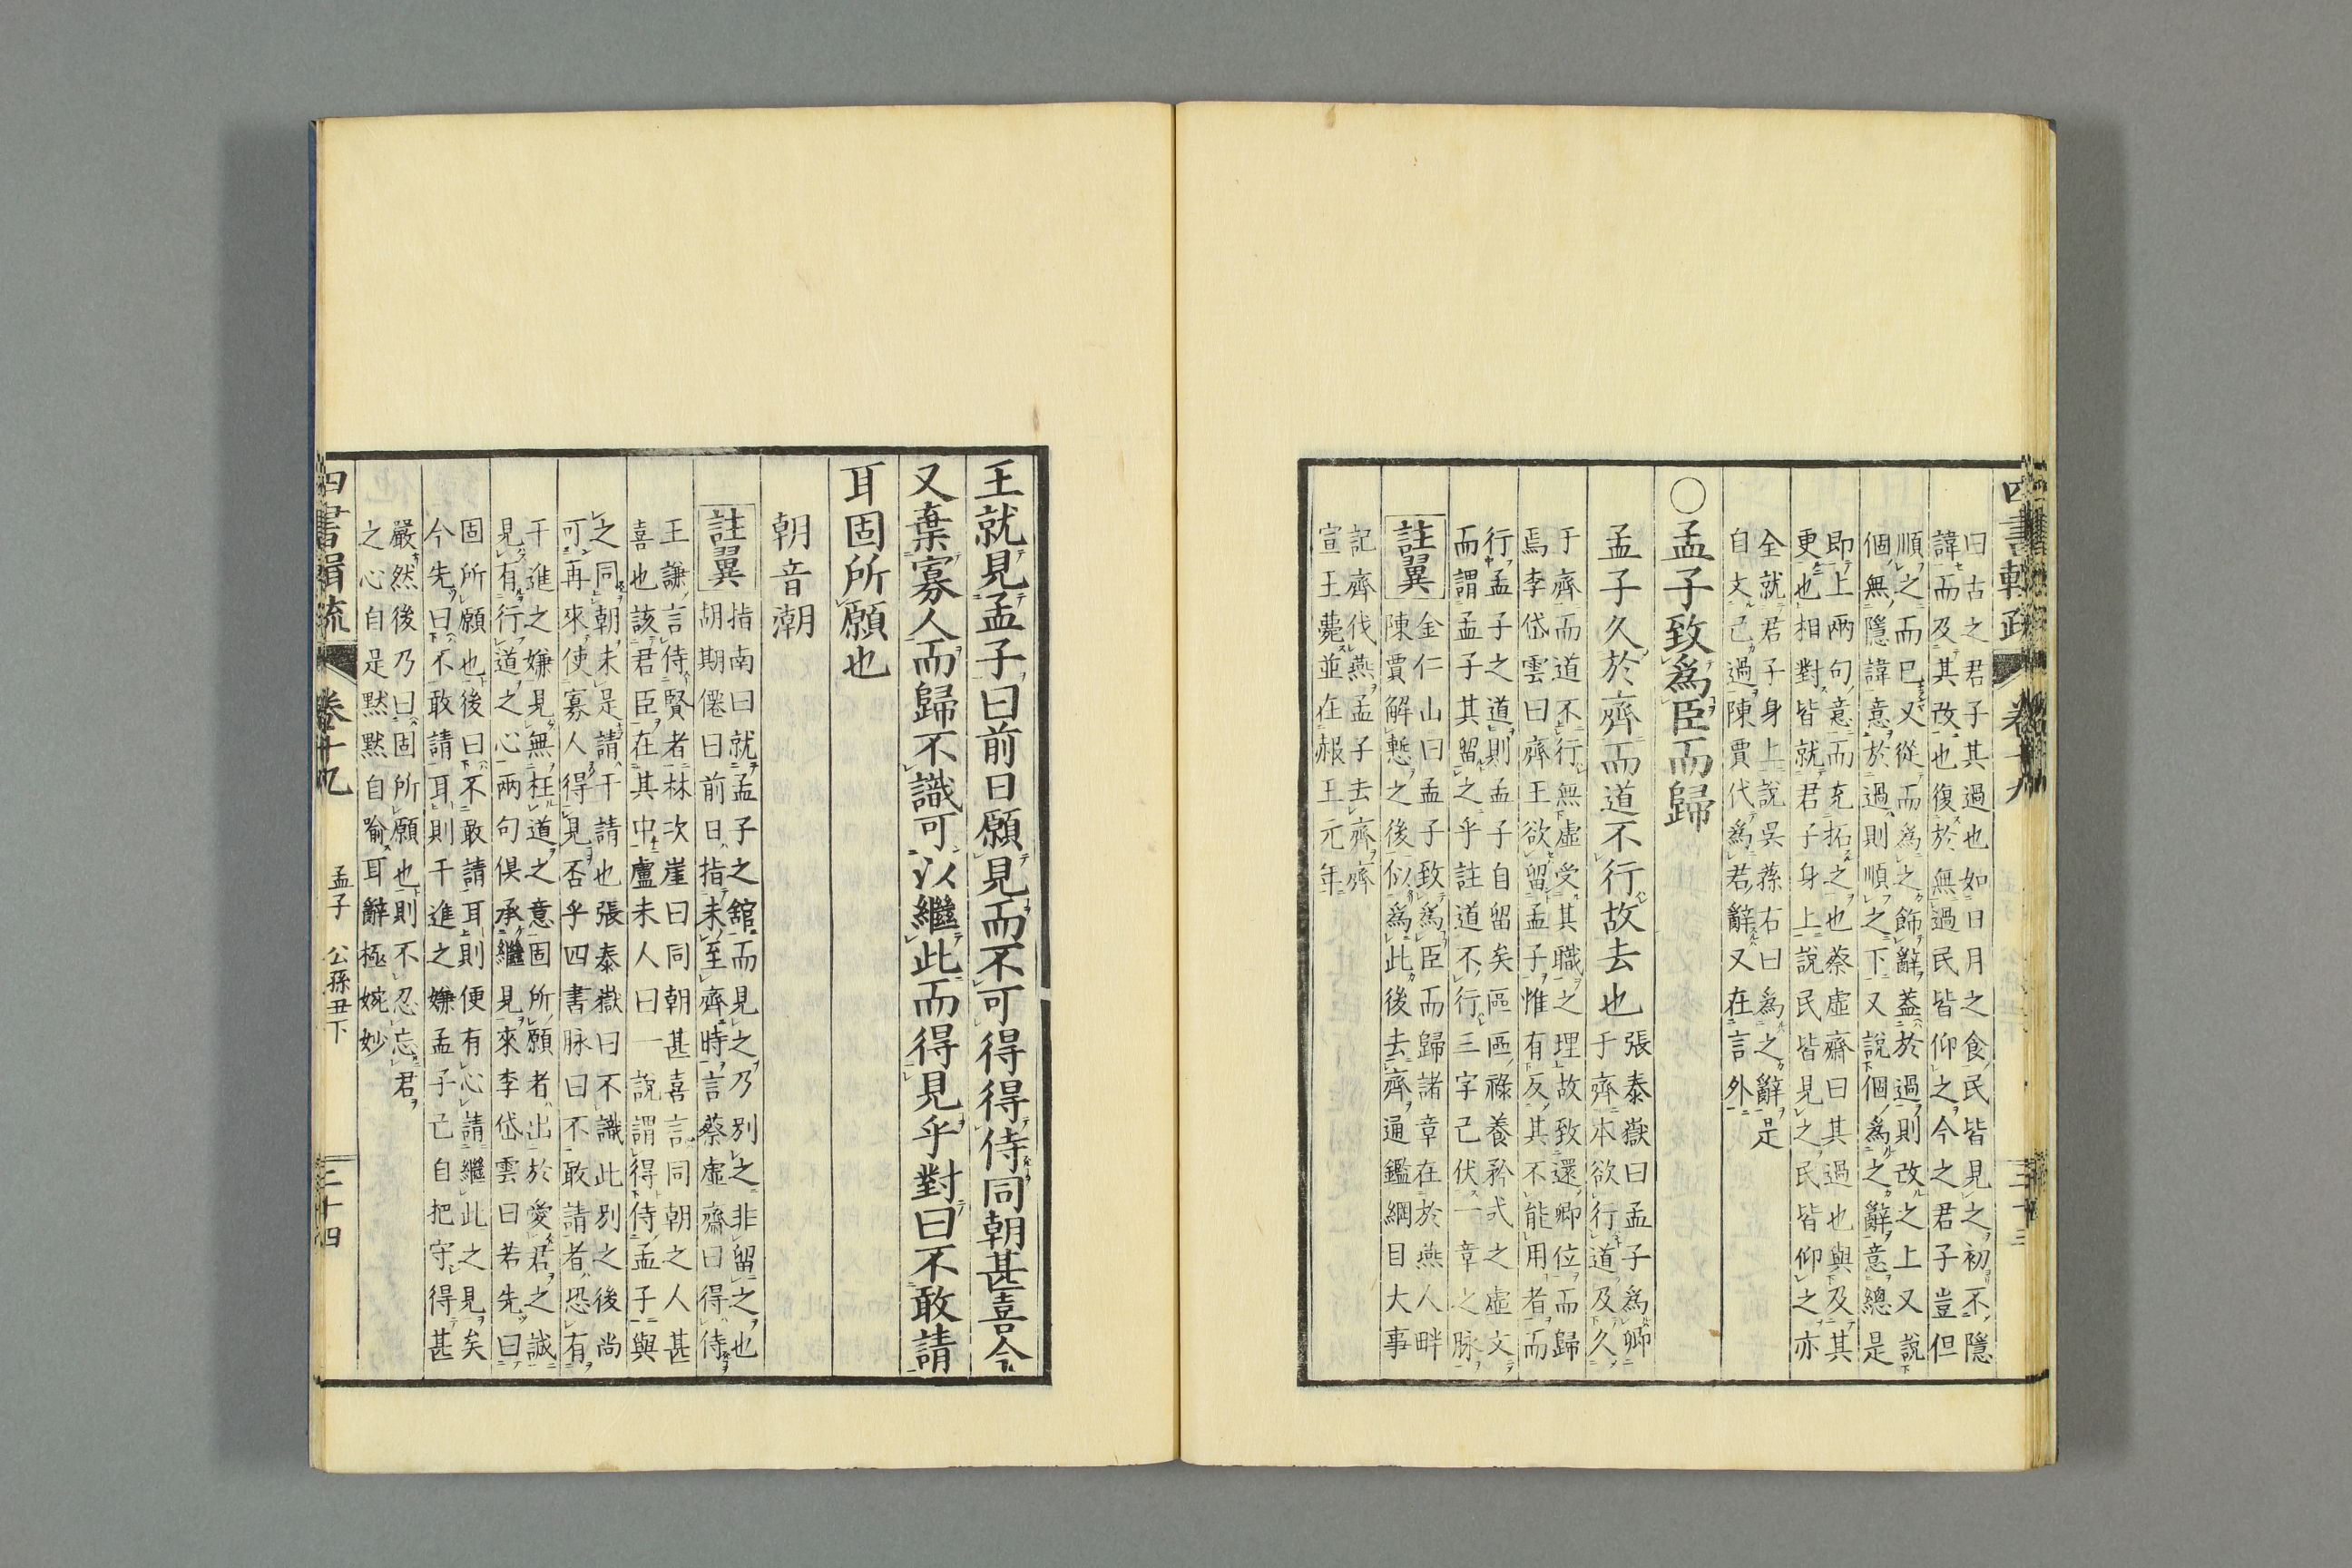 四書輯疏 卷十九 三十三
曰古之君子其過也如日月之食民皆見之初不隱
諱而及其改也復於無過民皆仰之今之君子豈但
順之而已又從而為之飾辭蓋於過則改之上又說
個無隱諱意於過則順之下又說個為之辭意總是
即上兩句意而充拓之也蔡虛齋曰其過也與及其
更也相對皆就君子身上說民皆見之民皆仰之亦
全就君子身上說吳蓀右曰為之辭是
自文己過陳賈代為君辭又在言外
○孟子致為臣而歸
孟子久於齊而道不行故去也
張泰嶽曰孟子為卿
于齊本欲行道及久
于齊而道不行無虛受其職之理故致還卿位而歸
焉李岱雲曰齊王欲留孟子惟有反其不能用者而
行孟子之道則孟子自留矣區區祿養矜式之虛文
而謂孟子其留之乎註道不行三字己伏一章之脉
註翼
金仁山曰孟子致為臣而歸諸章在於燕人畔
陳賈解慙之後似為此後去齊通鑑綱目大事
記齊伐燕孟子去齊齊
宣王薨並在赧王元年
王就見孟子曰前日願見而不可得得侍同朝甚喜今
又棄寡人而歸不識可以繼此而得見乎對曰不敢請
耳固所願也
朝音潮
註翼
指南曰就孟子之舘而見之乃別之非留之也
胡期僊曰前日指未至齊時言蔡虛齋曰得侍
王謙言侍賢者林次崖曰同朝甚喜言同朝之人甚
喜也該君臣在其中盧未人曰一說謂得侍孟子與
之同朝未是請干請也張泰嶽曰不識此別之後尚
可再來使寡人得見否乎四書脉曰不敢請者恐有
干進之嫌見無枉道之意固所願者出於愛君之誠
見有行道之心兩句俱承繼見來李岱雲曰若先曰
固所願也後曰不敢請耳則便有心請繼此之見矣
今先曰不敢請耳則干進之嫌孟子己自把守得甚
嚴然後乃曰固所願也則不忍忘君
之心自是默默自喻耳辭極婉妙
四書輯疏 卷十九 孟子 公孫丑下 三十四